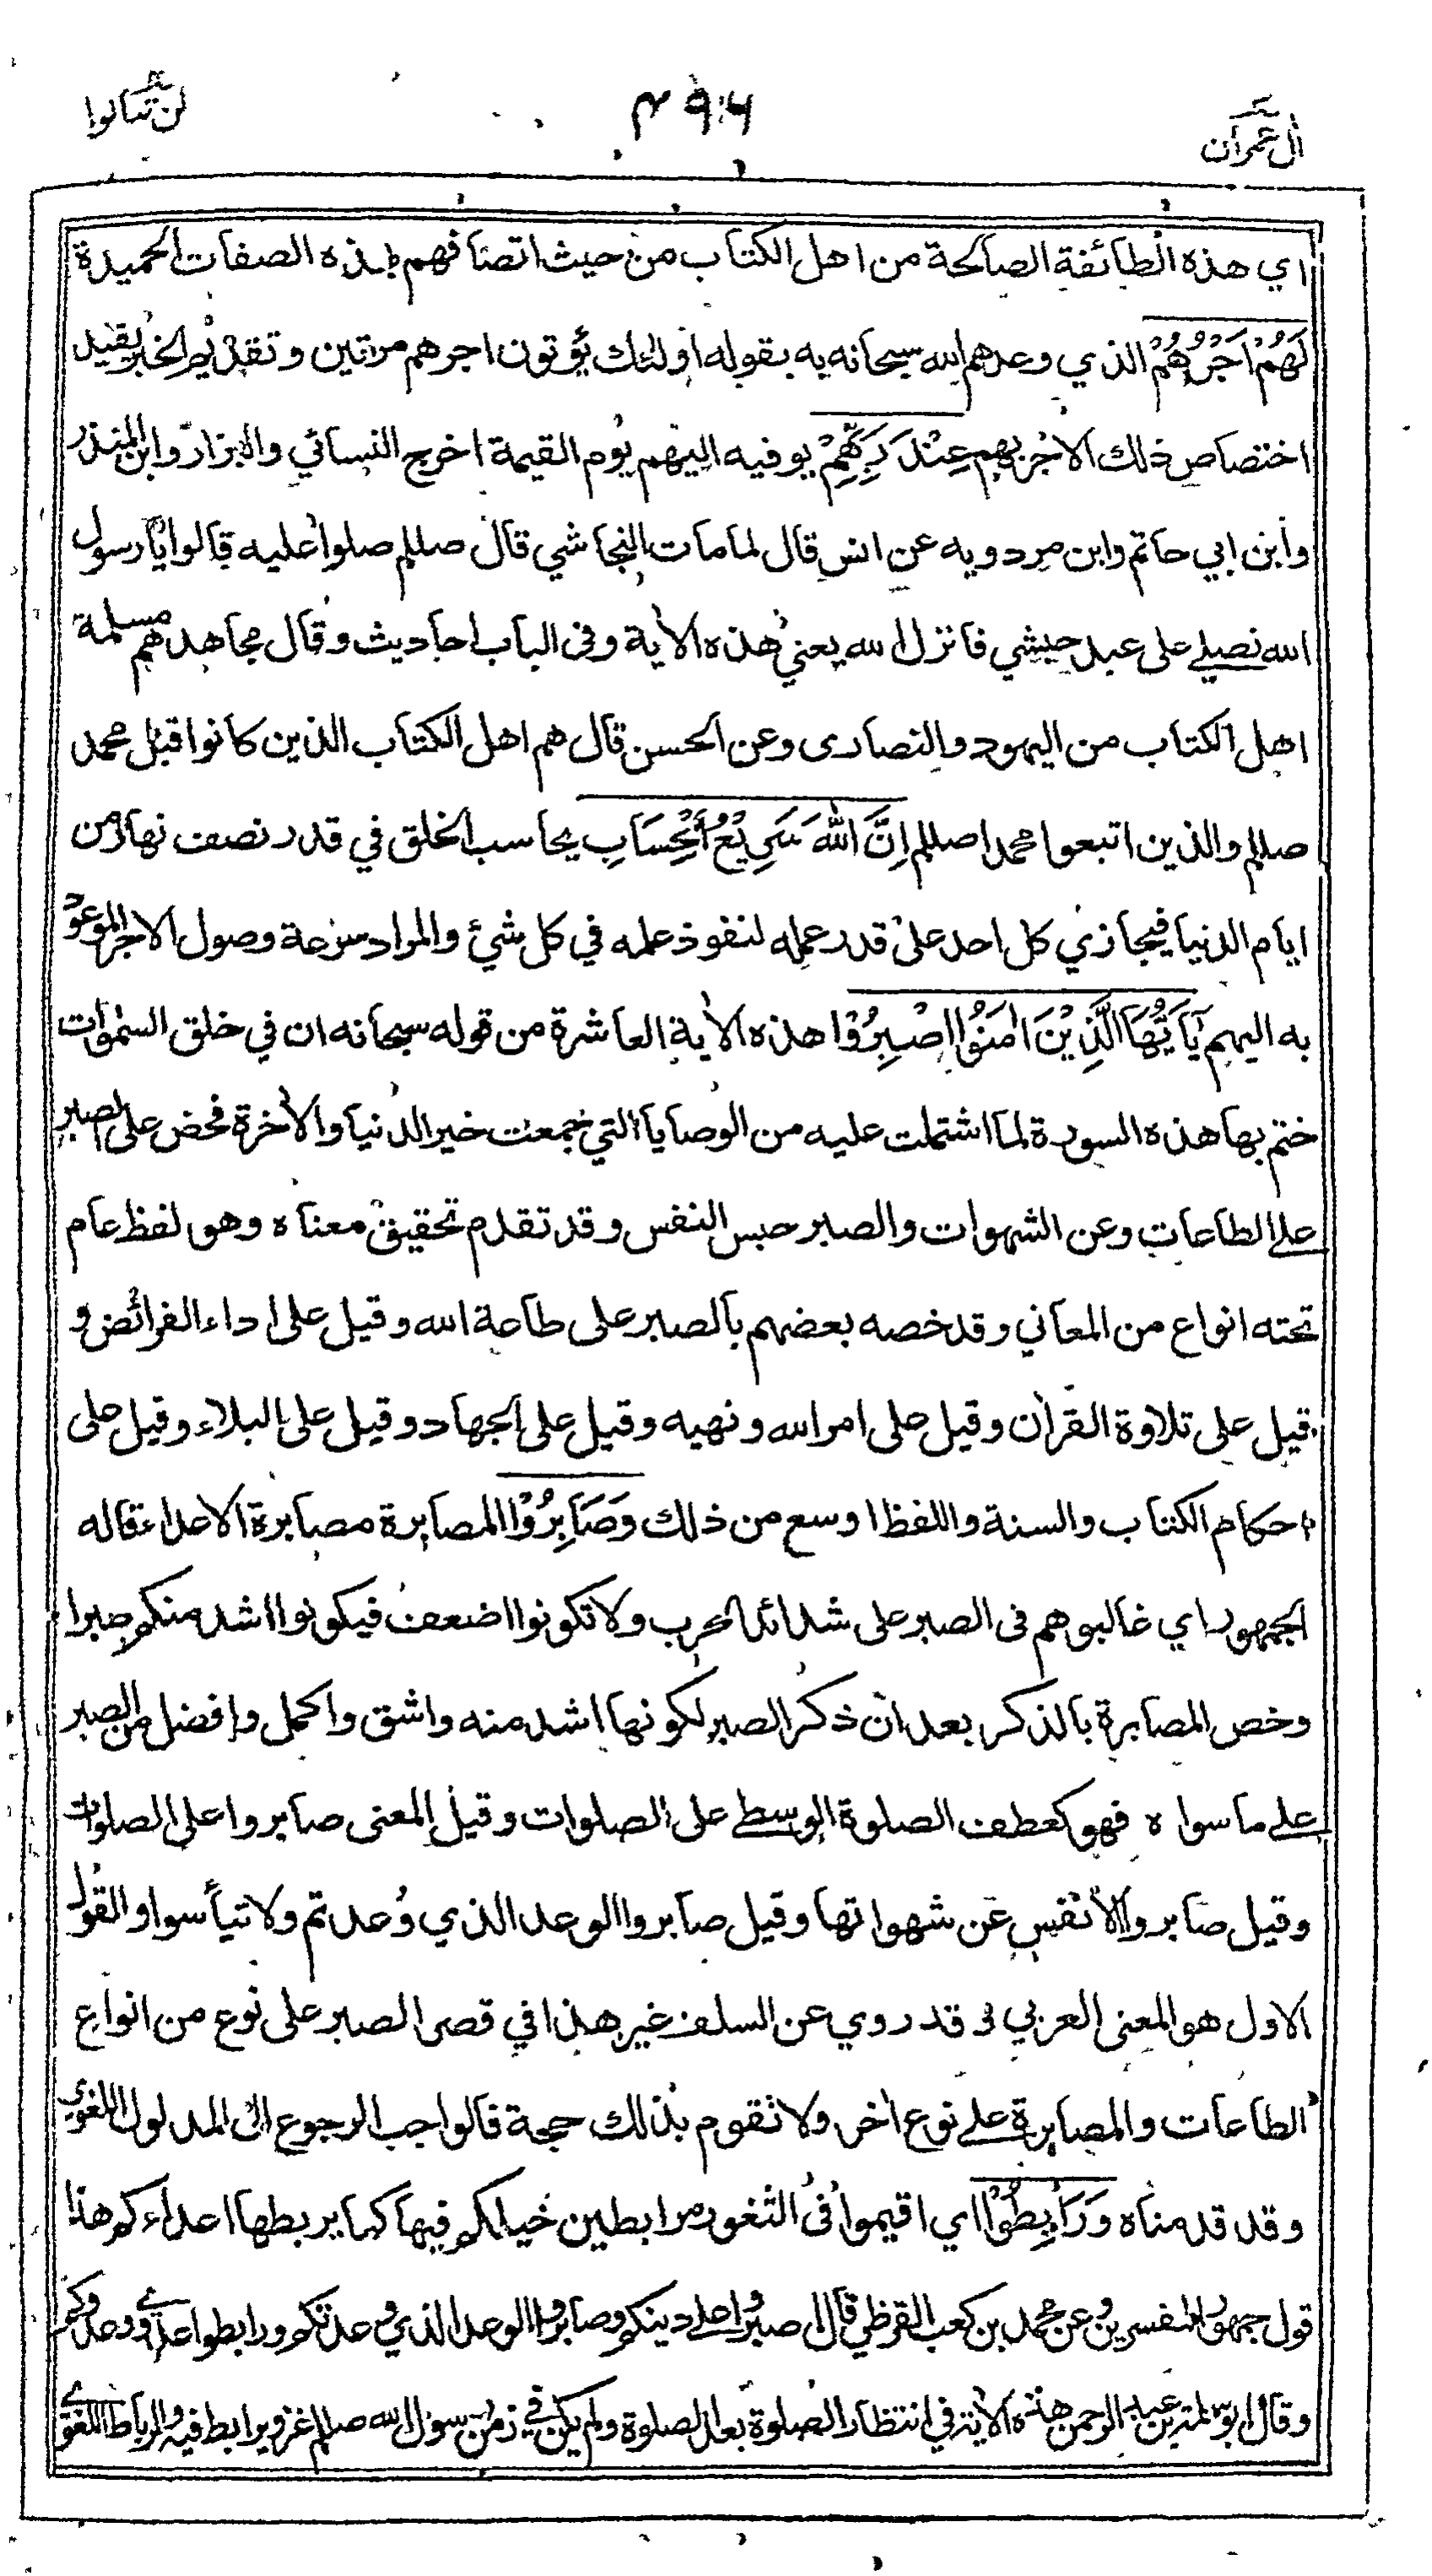 أل عمران
٤٩٦
لن تنالوا
اي هذه الطائفة الصالحة من اهل الكتاب من حيث اتصافهم بهذه الصفات الحميدة
لَهُمْ اَجْرُهُمْ الذي وعدهم الله سبحانه به بقوله اولئك يؤتون اجرهم مرتين وتقديم الخبر يفيد
اختصاص ذلك الاجر بهم عِنْدَ رَبِّهِمْ يوفيه اليهم يوم القيمة اخرج النسائي والبزار وابن المنذر
وابن ابي حاتم وابن مردويه عن انس قال لما مات النجاشي قال صللم صلوا عليه قالوا يا رسول
الله نصلي على عبد حبشي فانزل الله يعني هذه الأية وفى الباب احاديث وقال مجاهد هم مسلمة
اهل الكتاب من اليهود والنصارى وعن الحسن قال هم اهل الكتاب الذين كانوا قبل محمد
صللم والذين اتبعوا محمدا صللم اِنَّ اللّٰهَ سَرِيْعُ الْحِسَابِ يحاسب الخلق في قدر نصف نهار من
ايام الدنيا فيجازي كل احد على قدر عمله لنفوذ علمه في كل شيئ والمراد سرعة وصول الاجر الموعود
به اليهم يَآ اَيُّهَا الَّذِيْنَ اٰمَنُوا اصْبِرُوْا هذه الأية العاشرة من قوله سبحانه ان في خلق السمٰوات
ختم بها هذه السورة لما اشتملت عليه من الوصايا التي جمعت خير الدنيا والأخرة فحض على الصبر
على الطاعات وعن الشهوات والصبر حبس النفس وقد تقدم تحقيق معناه وهو لفظ عام
تحته انواع من المعاني وقد خصه بعضهم بالصبر على طاعة الله وقيل على اداء الفرائض و
قيل على تلاوة القرأن وقيل على امر الله ونهيه وقيل على الجهاد وقيل على البلاء وقيل على
احكام الكتاب والسنة واللفظ اوسع من ذلك وَصَابِرُوْا المصابرة مصابرة الاعداء قاله
الجمهور اي غالبوهم فى الصبر على شدائد الحرب ولا تكونوا اضعف فيكونوا اشد منكم صبرا
وخص المصابرة بالذكر بعد ان ذكر الصبر لكونها اشد منه واشق واكمل وافضل من الصبر
على ما سواه فهو كعطف الصلوة الوسطى على الصلوات وقيل المعنى صابروا على الصلوات
وقيل صابروا الأنفس عن شهواتها وقيل صابروا الوعد الذي وُعدتم ولا تيأسوا والقول
الاول هو المعنى العربي و قد روي عن السلف غير هذا في قصر الصبر على نوع من انواع
الطاعات والمصابرة على نوع أخر ولا تقوم بذلك حجة فالواجب الرجوع الى المدلول اللغوي
وقد قدمناه وَرَابِطُوْا اي اقيموا فى الثغور مرابطين خيلكم فيها كما يربطها اعداءكم هذا
قول جمهور المفسرين وعن محمد بن كعب القرظي قال اصبروا على دينكم وصابروا الوعد الذي وعدتكم ورابطوا عدوي وعدوكم
وقال ابو سلمة بن عبد الرحمن هذه الأية في انتظار الصلوة بعد الصلوة ولم يكن في زمن رسول الله صللم غزو يرابط فيه والرباط اللغوي